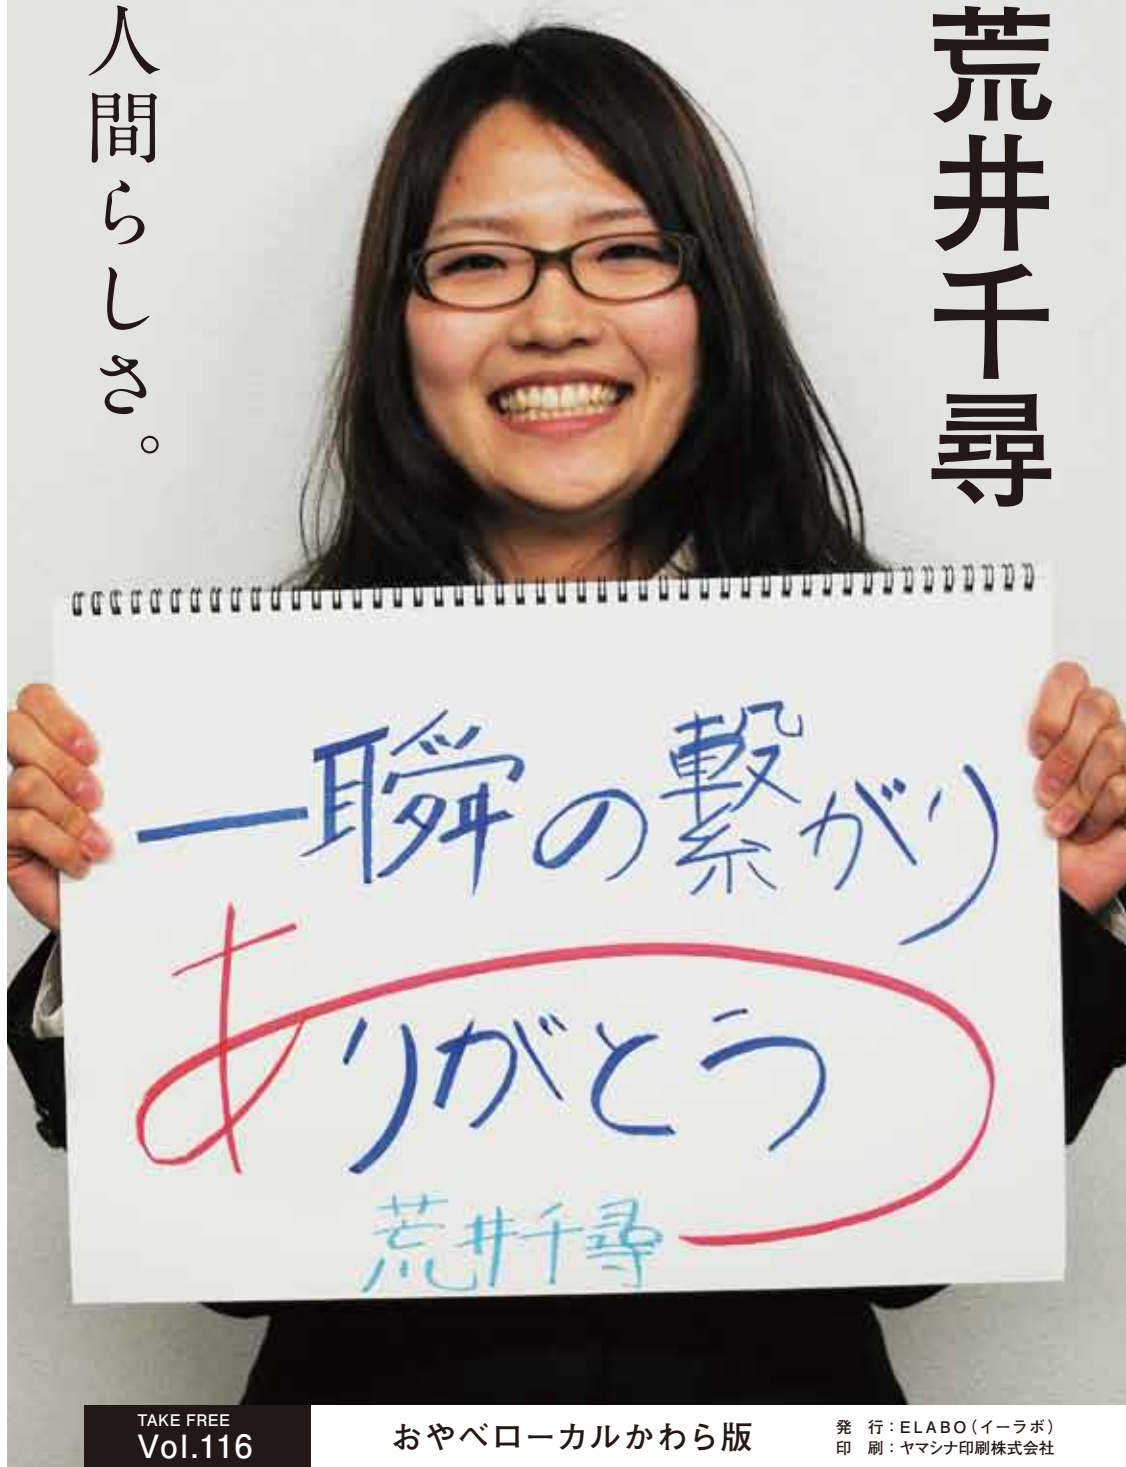 荒井千尋
人間らしさ。
一瞬の繋がり
ありがとう
荒井千尋
TAKE FREE
Vol.116
おやべローカルかわら版
発　行：ELABO（イーラボ）
印　刷：ヤマシナ印刷株式会社